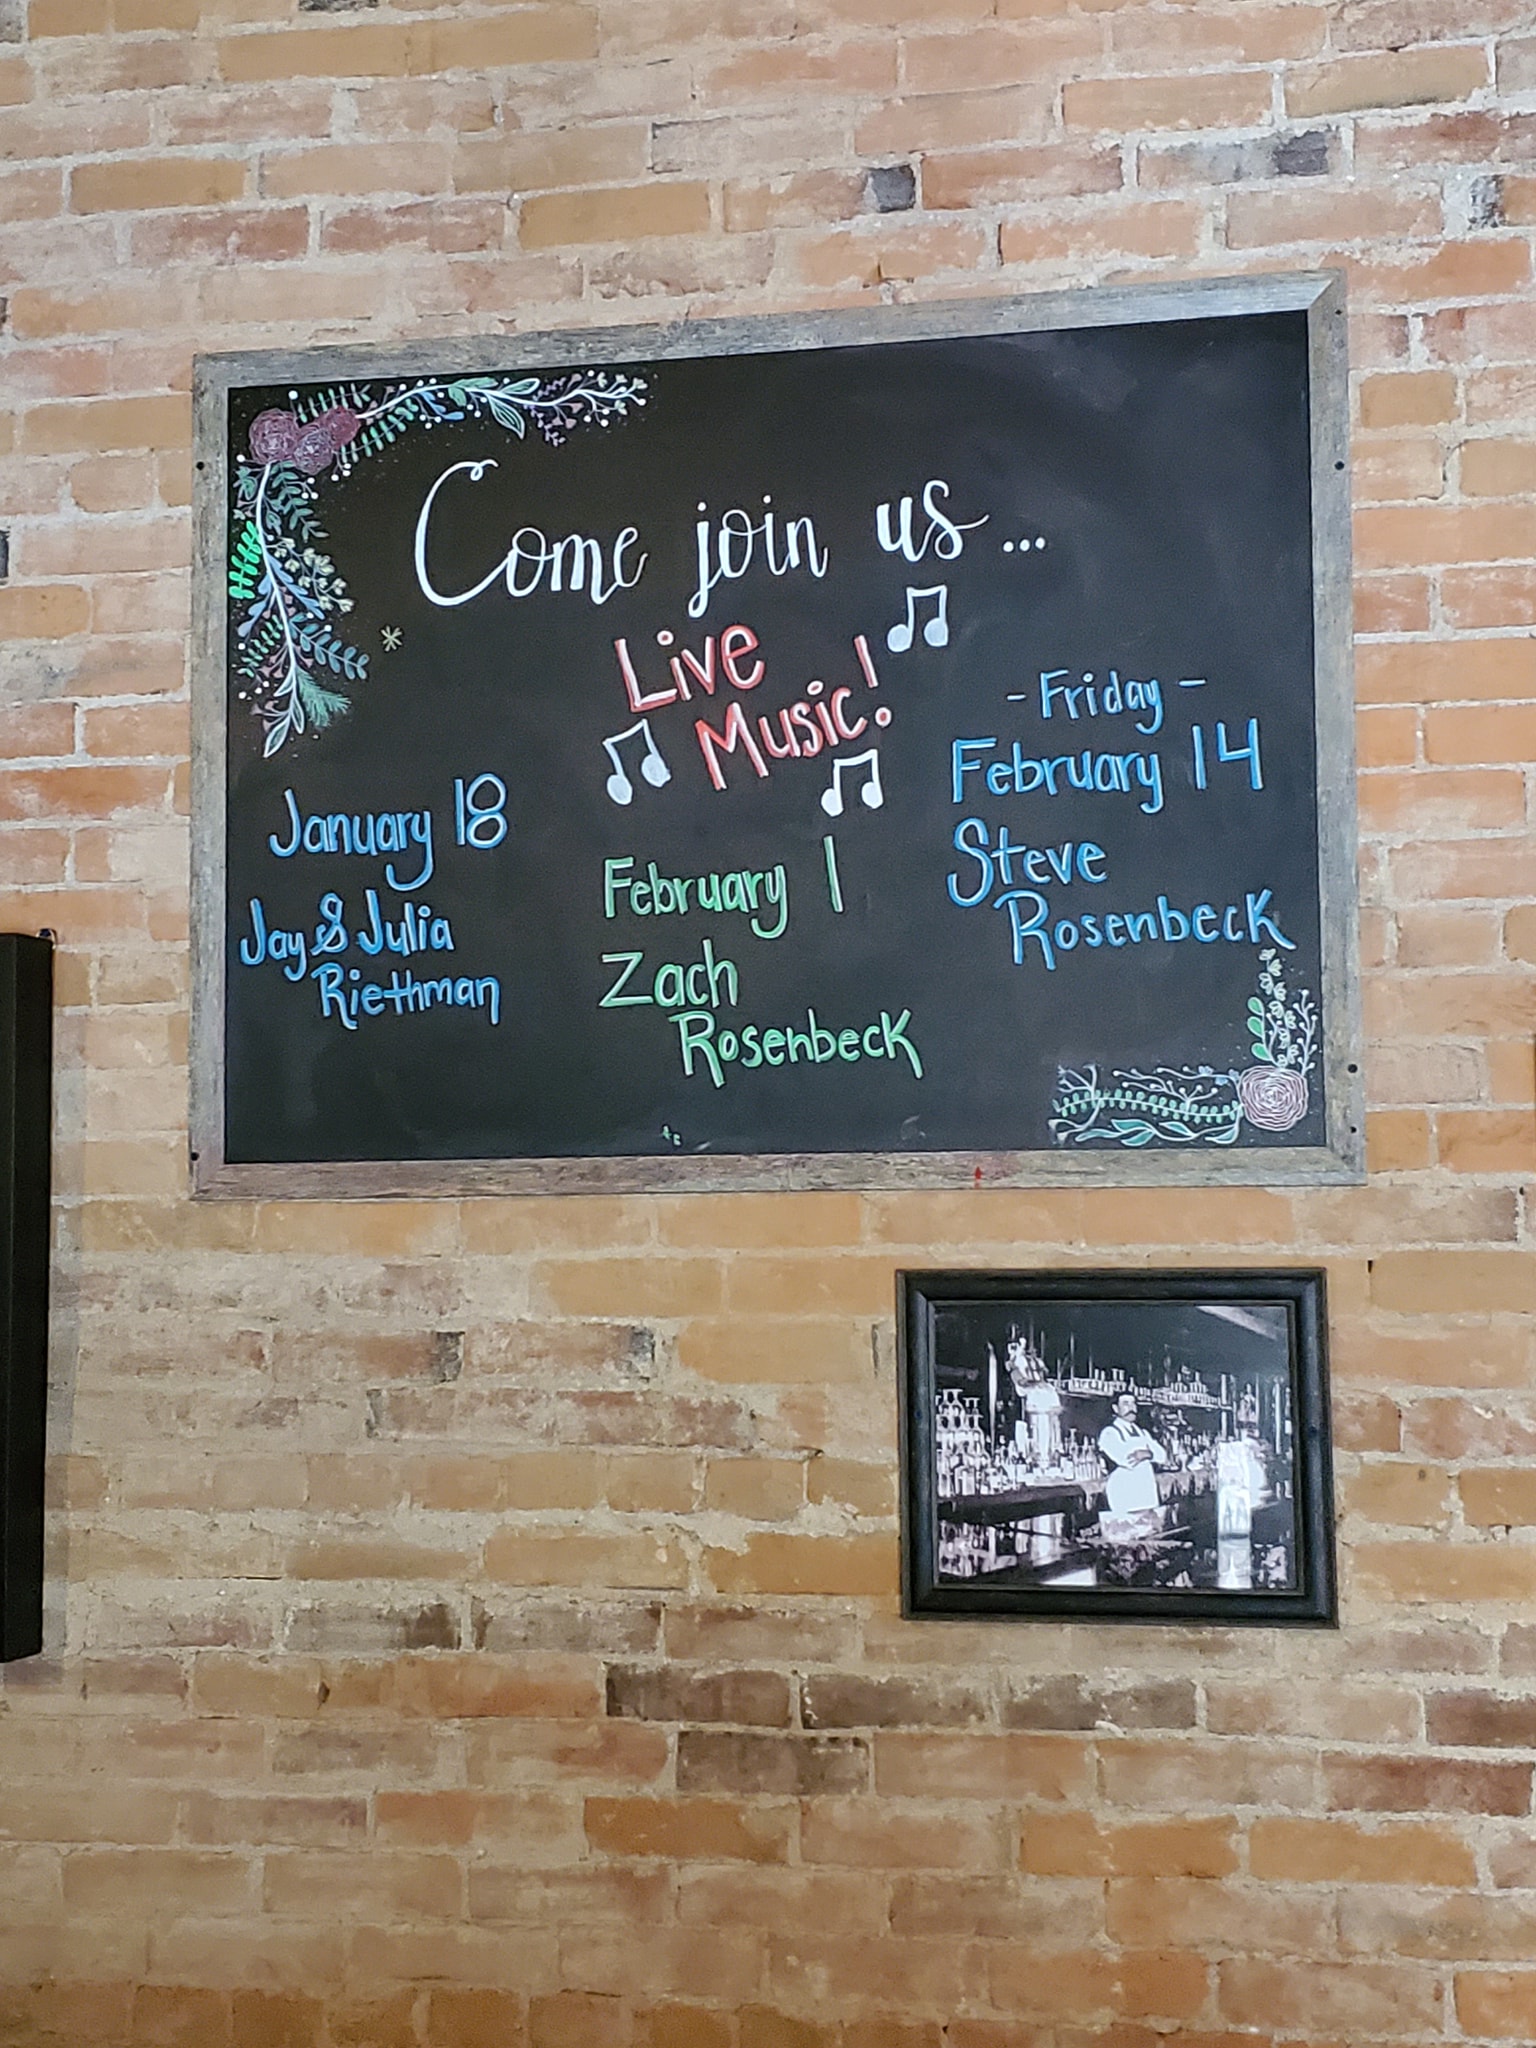 Come join us...
Live
Music!
January 18
Jay & Julia
Riethman
February 1
Zach
Rosenbeck
- Friday -
February 14
Steve
Rosenbeck